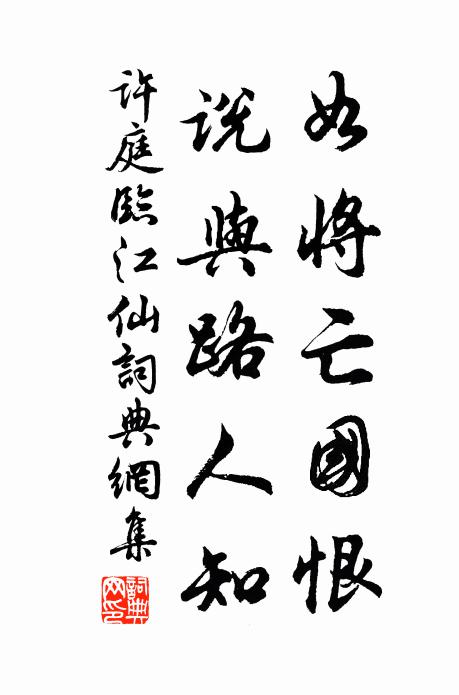 如將亡國恨
說與路人知
許庭臨江仙詞典網集
詞典網印